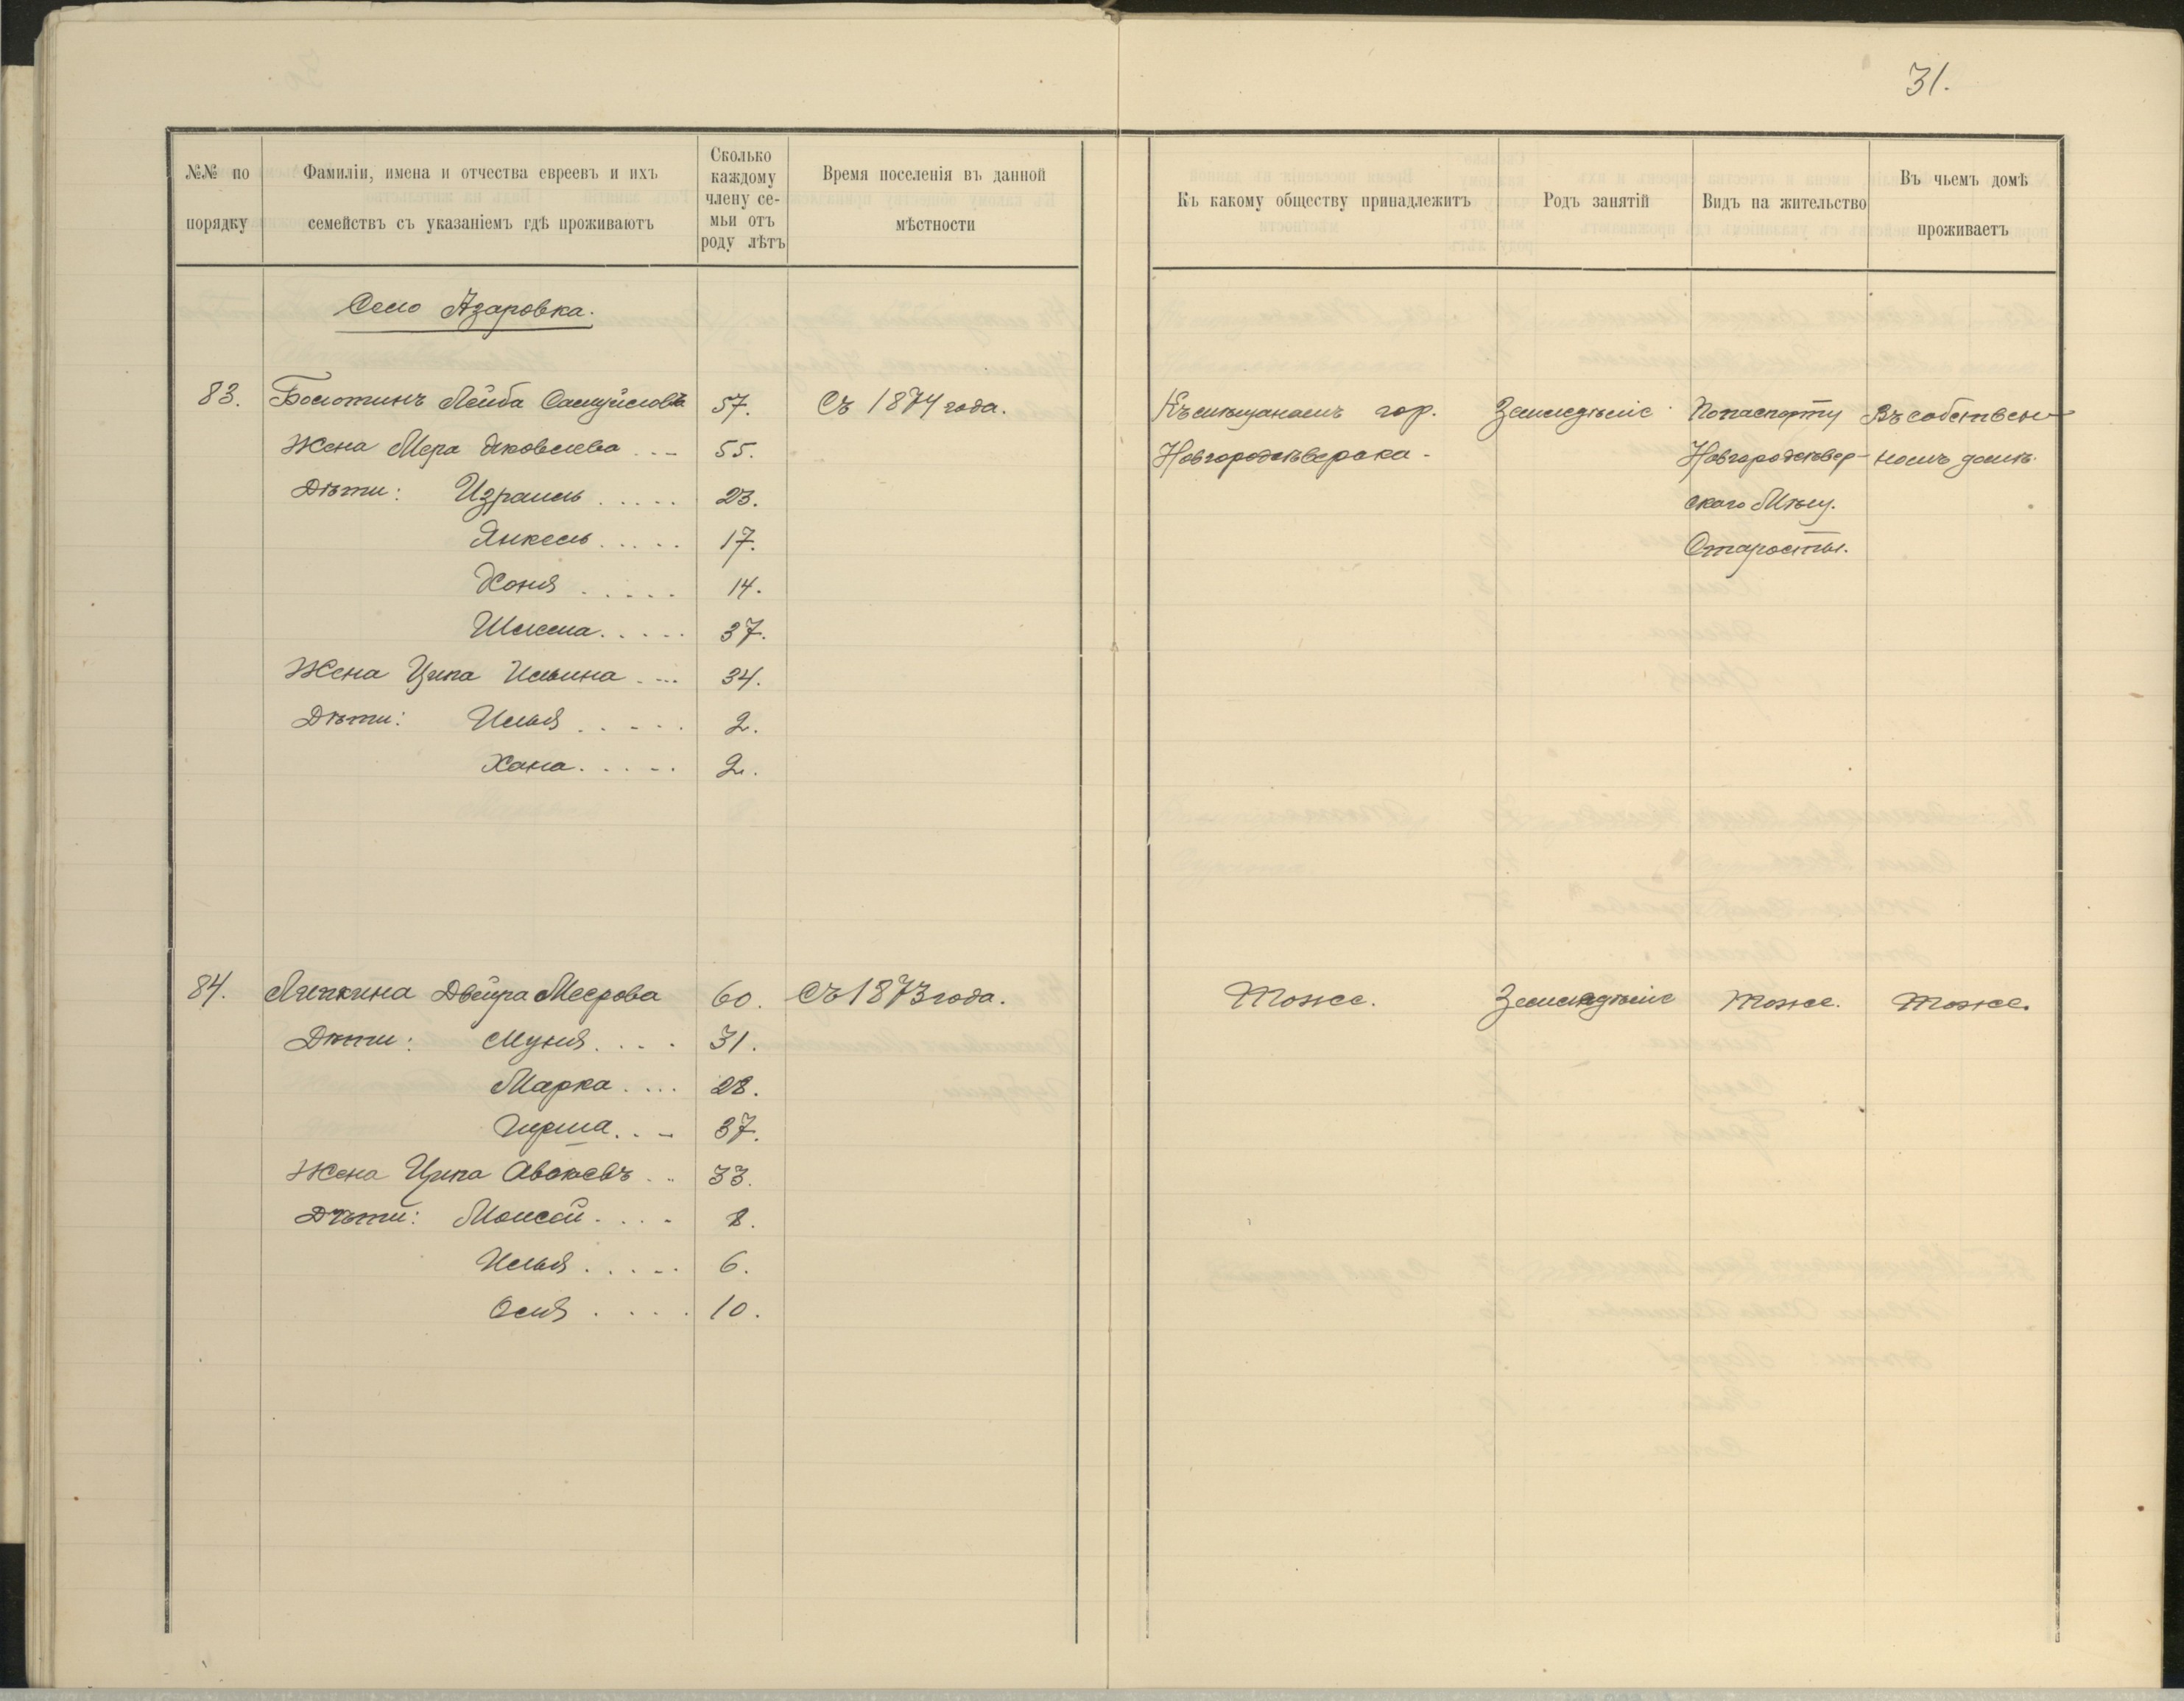 31.
№№ по
порядку
Фамиліи, имена и отчества евреевъ и ихъ
семействъ съ указаніемъ гдѣ проживаютъ
Сколько
каждому
члену се-
мьи отъ
роду лѣтъ
Время поселенія въ данной
мѣстности
Къ какому обществу принадлежитъ
Родъ занятій
Видъ на жительство
Въ чьемъ домѣ
проживаетъ
Село Азаровка.
83. Болотинъ Лейба Самуйловъ 57. Съ 1874 года. Къ мѣщанамъ гор. Земледѣліе По паспорту Въ собствен-
Жена Мера Яковлева 55. Новгородсѣверска. Новгородсѣвер- номъ домѣ.
Дѣти: Израиль 23. скаго Мѣщ.
Янкель 17. Старосты.
Хоня 14.
Шлема 37.
Жена Ципа Ильина 34.
Дѣти: Илья 2.
Хана 2.
84. Ляпкина Двейра Меерова 60. Съ 1873 года. Тоже. Земледѣліе Тоже. Тоже.
Дѣти: Муня 31.
Марка 28.
Гирша 37.
Жена Ципа 33.
Дѣти: Моисей 8.
Илья 6.
10.